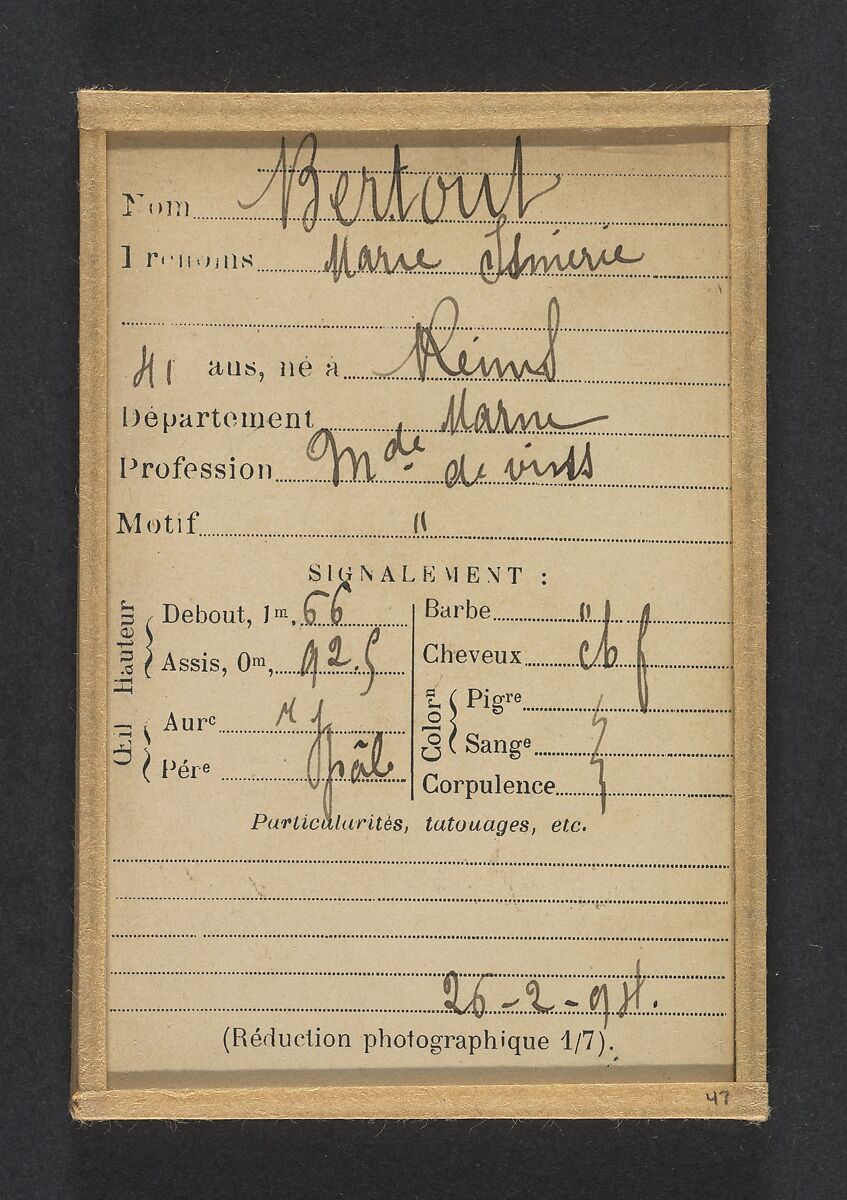 Nom Bertout
Prénoms Marie Ismérie
41 ans, né à Reims
Département Marne
Profession Mde de vins
Motif "
SIGNALEMENT :
Hauteur
Debout, 1m. 66
Assis, 0m, 92.5
Œil
Aurc r j
Pére pâle
Barbe "
Cheveux ch f
Colorn
Pigre
Sange
Corpulence
Particularités, tatouages, etc.
26-2-94.
(Réduction photographique 1/7).
47